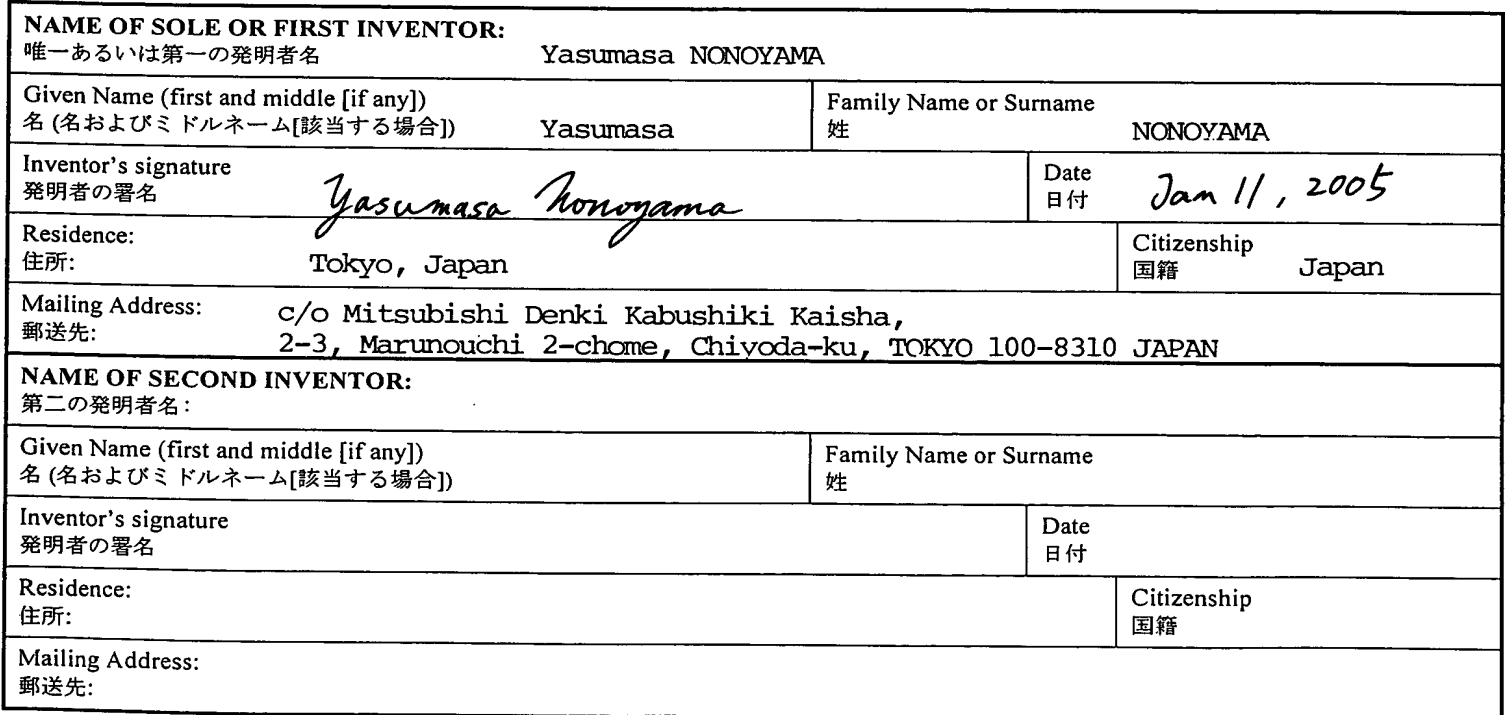 NAME OF SOLE OR FIRST INVENTOR:
唯一あるいは第一の発明者名 Yasumasa NONOYAMA
Given Name (first and middle [if any])
名 (名およびミドルネーム[該当する場合]) Yasumasa
Family Name or Surname
姓 NONOYAMA
Inventor's signature
発明者の署名 Yasumasa Nonoyama
Date
日付 Jan 11, 2005
Residence:
住所: Tokyo, Japan
Citizenship
国籍 Japan
Mailing Address: c/o Mitsubishi Denki Kabushiki Kaisha,
郵送先: 2-3, Marunouchi 2-chome, Chiyoda-ku, TOKYO 100-8310 JAPAN
NAME OF SECOND INVENTOR:
第二の発明者名:
Given Name (first and middle [if any])
名 (名およびミドルネーム[該当する場合])
Family Name or Surname
姓
Inventor's signature
発明者の署名
Date
日付
Residence:
住所:
Citizenship
国籍
Mailing Address:
郵送先: